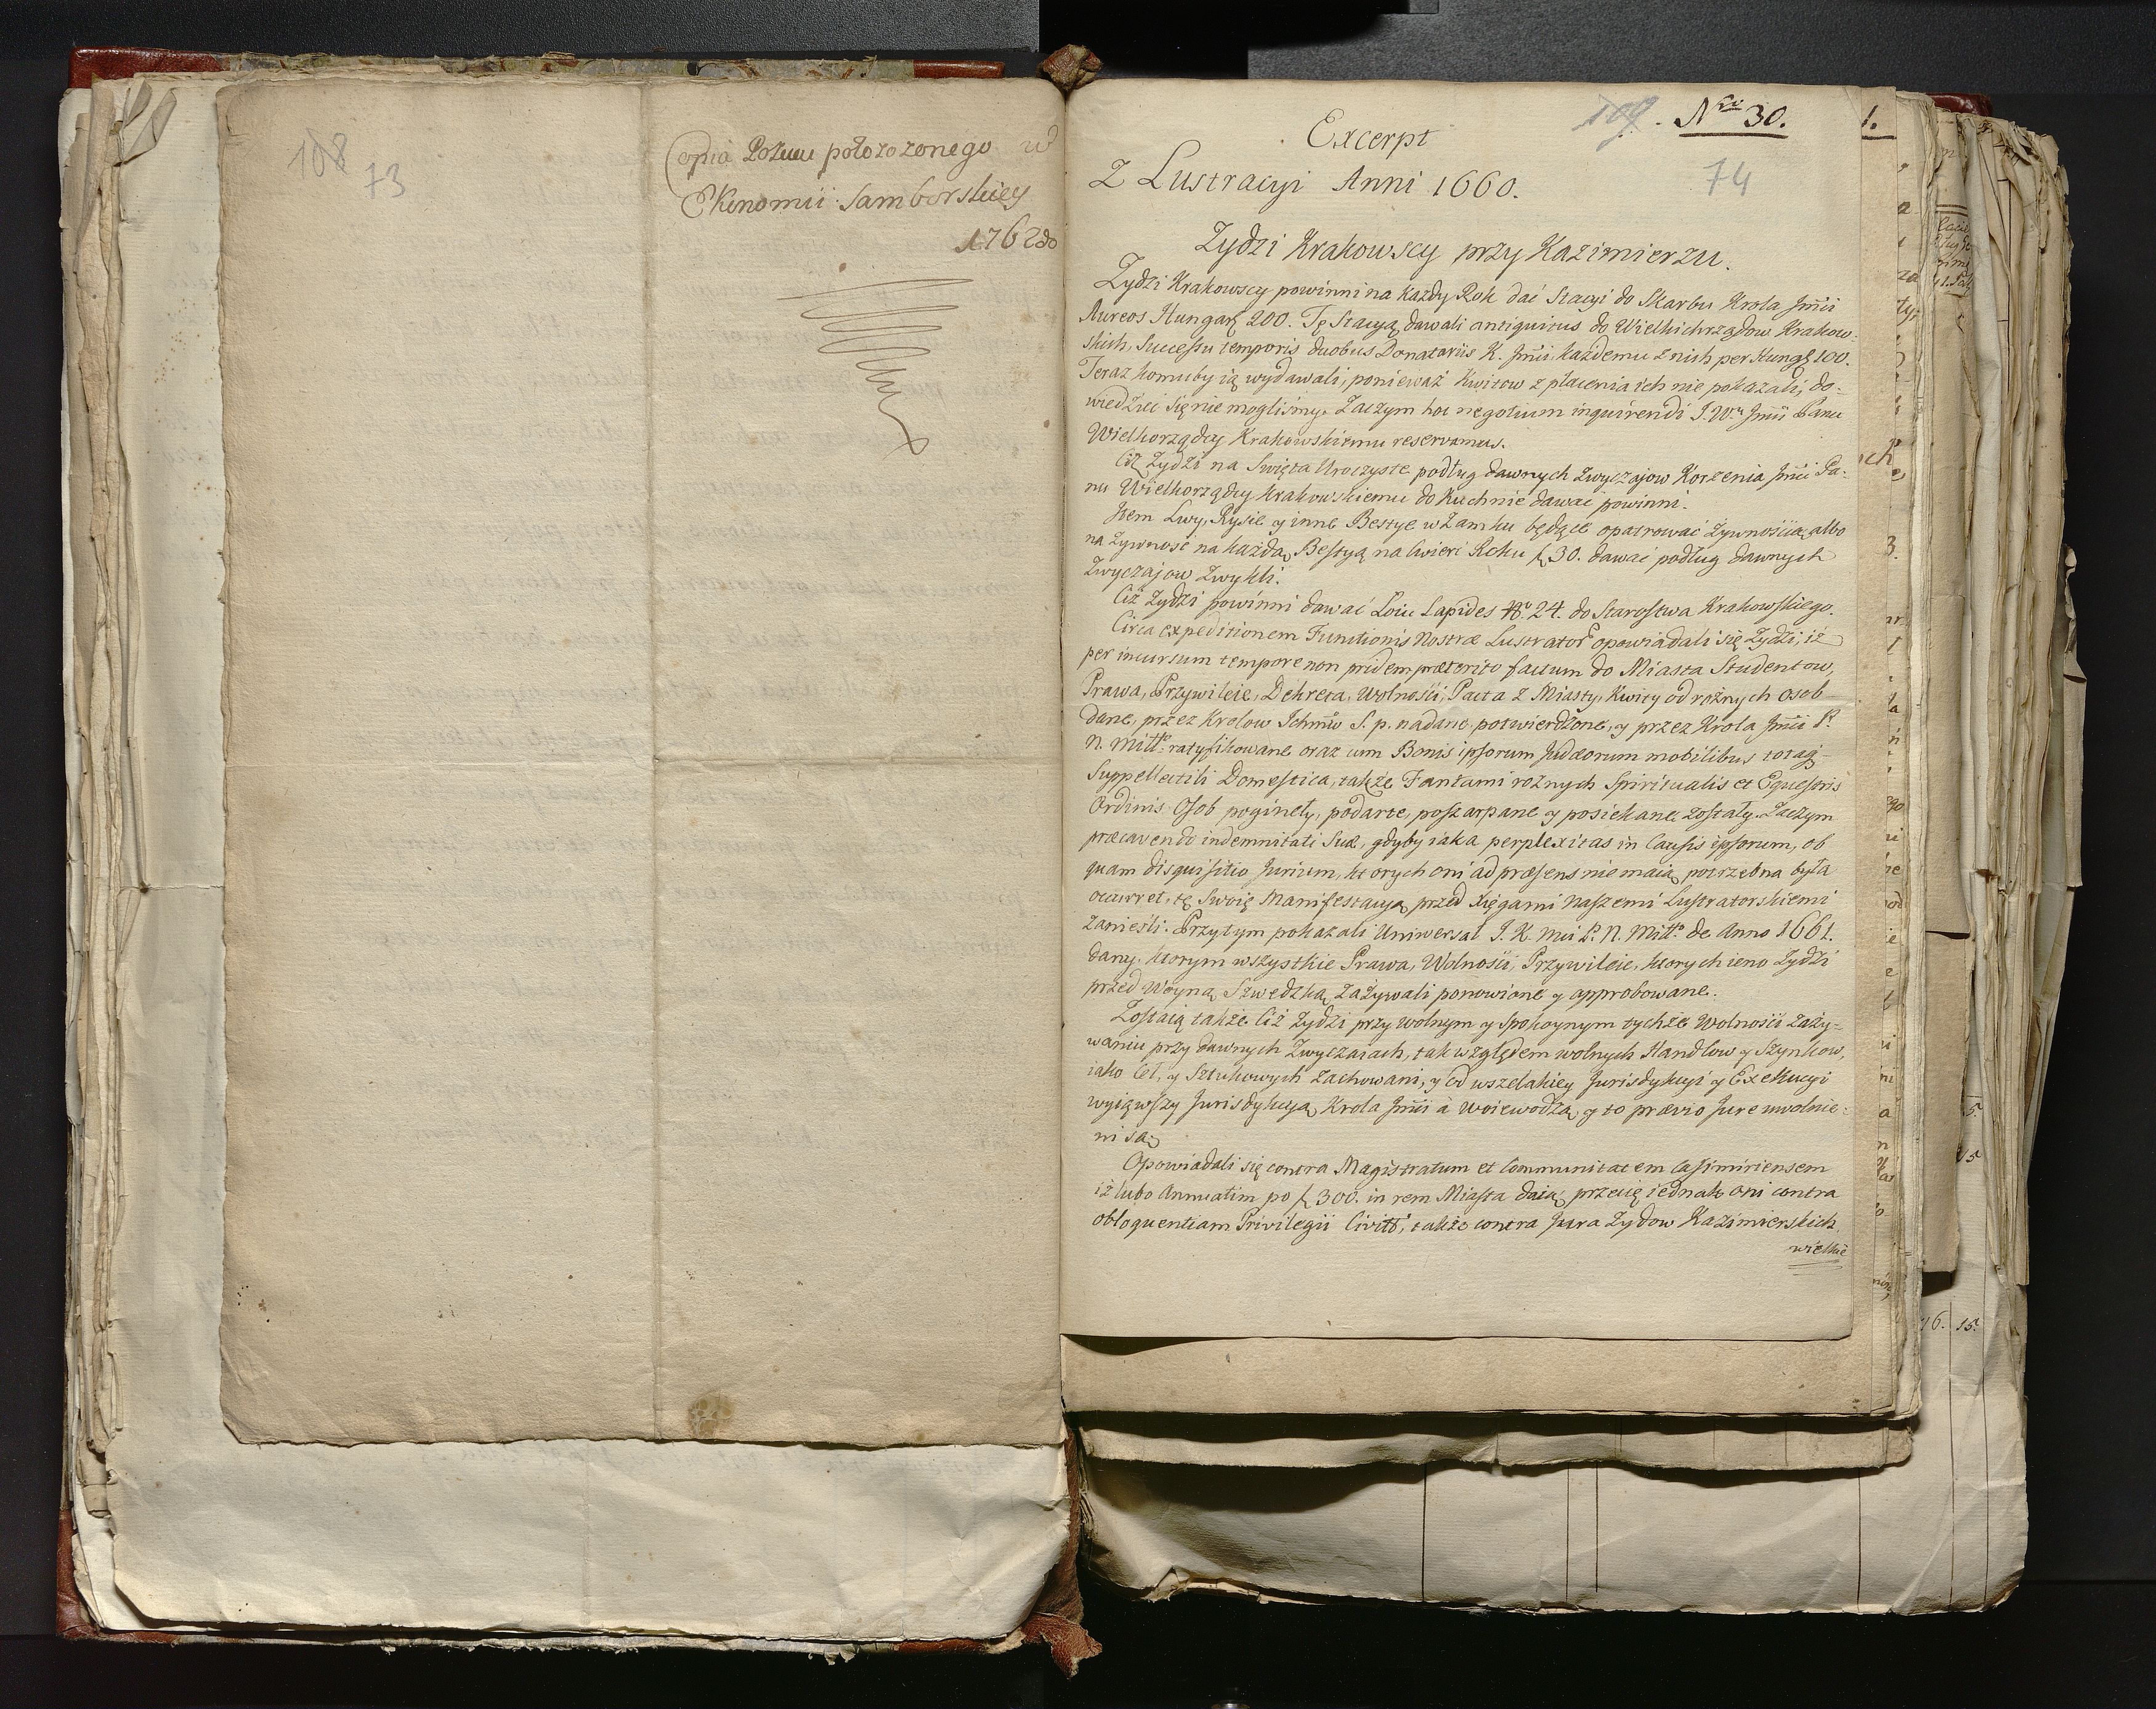 108
73
Copia Pozwu połozozonego w
Ekonomii Samborskiey
1762do
109. Nro 30.
74
Excerpt
Z Lustracyi Anni 1660.
Zydzi Krakowscy przy Kazimierzu.
Zydzi Krakowscy powinni na każdy Rok dać Stacyi do Skarbu Krola Jmci
Aureos Hungar 200. Tę Stacyą dawali antiquitus do Wielkichrządow Krakow-
skich, Successu temporis duobus Donatariis K. Jmci każdemu z nich per Hung 100.
Teraz komuby ią wydawali, ponieważ Kwitow z płacenia ich nie pokazali, do-
wiedzieć się nie mogliśmy. Zaczym hoc negotium inquirendi J. W. Jmci Panu
Wielkorządcy Krakowskiemu reservamus.
Ciż Zydzi na Swięta Uroczyste podług dawnych zwyczajow Korzenia Jmci Pa-
nu Wielkorządcy Krakowskiemu do Kuchnie dawać powinni.
Item Lwy, Rysie y inne Bestye w Zamku będące opatrować Zywnością, albo
na żywność na każdą Bestyą na cwierć Roku f 30. dawać podług dawnych
Zwyczajow Zwykli.
Ciż Zydzi powinni dawać Łoiu Lapides 24. do Starostwa Krakowskiego.
Circa expeditionem Functionis Nostræ Lustrator opowiadali się Zydzi, iż
per incursum tempore non pridem præterito factum do Miasta Studentow,
Prawa, Przywileie, Dekreta, Wolności, Pacta z Miasty, Kwity od rożnych osob
dane, przez Krolow Ichmw S. p. nadane, potwierdzone, y przez Krola Jmci P.
N. Mill. ratyfikowane oraz cum Bonis ipsorum Judæorum mobilibus totaq
Suppellectili Domestica, także Fantami rożnych Spiritualis et Equestris
Ordinis Osob poginęły, podarte, poszarpane y posiekane zostały. Zaczym
præcavendo indemnitati Suæ, gdyby iaka perplexitas in Causis ipsorum, ob
quam disquisitio Jurium, ktorych oni ad præsens nie maią, potrzebna była
occurret, tę Swoię Manifestacyą przed Xięgami Naszemi Lustratorskiemi
zanieśli. Przytym pokazali Uniwersał J. K. Mci P. N. Mill. de Anno 1661.
dany, ktorym wszystkie Prawa, Wolności, Przywileie, ktorych ieno Zydzi
przed Woyną Szwedzką Zażywali ponowione y approbowane.
Zostaią także Ciż Zydzi przy wolnym y spokoynym tychże Wolności zaży-
waniu przy dawnych Zwyczaiach, tak względem wolnych Handlow y Szynkow,
iako Ceł, y Sztukowych zachowani, y od wszelakiey Jurisdykcyi y Exekucyi
wyiąwszy Jurisdykcyą Krola Jmci a Woiewodzą, y to prævio Jure uwolnie-
ni są.
Opowiadali się contra Magistratum et Communitatem Casimiriensem
iż lubo Annuatim po f 300. in rem Miasta daią, przecię iednak oni contra
obloquentiam Privilegii Civitt, także contra Jura Zydow Kazimierskich
wielkie
16. 15.